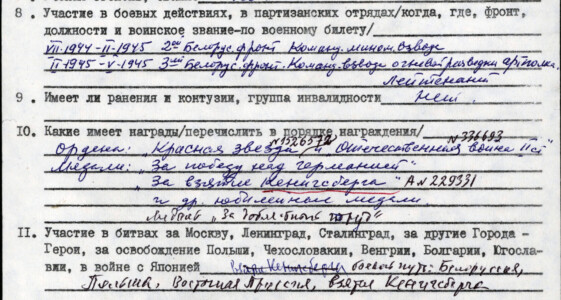 8. Участие в боевых действиях, в партизанских отрядах/когда, где, фронт,
должности и воинское звание-по военному билету/
VII-1944-II-1945 2ой Белорус. фронт Команд. мином. взвода
II-1945-V-1945 3ий Белорус. фронт. Команд. взвода огневой разведки артполка.
Лейтенант
9. Имеет ли ранения и контузии, группа инвалидности Нет.
10. Какие имеет награды/перечислить в порядке награждения/
Ордена: "Красная звезда" и Отечественная война II ст
Медали: "За победу над Германией"
"За взятие Кенигсберга" А№229331
и др. юбилейные медали
Медаль "За доблестный труд"
11. Участие в битвах за Москву, Ленинград, Сталинград, за другие Города -
Герои, за освобождение Польши, Чехословакии, Венгрии, Болгарии, Югосла-
вии, в войне с Японией боевой путь: Белоруссия,
Польша, Восточная Пруссия, взятие Кенигсберга